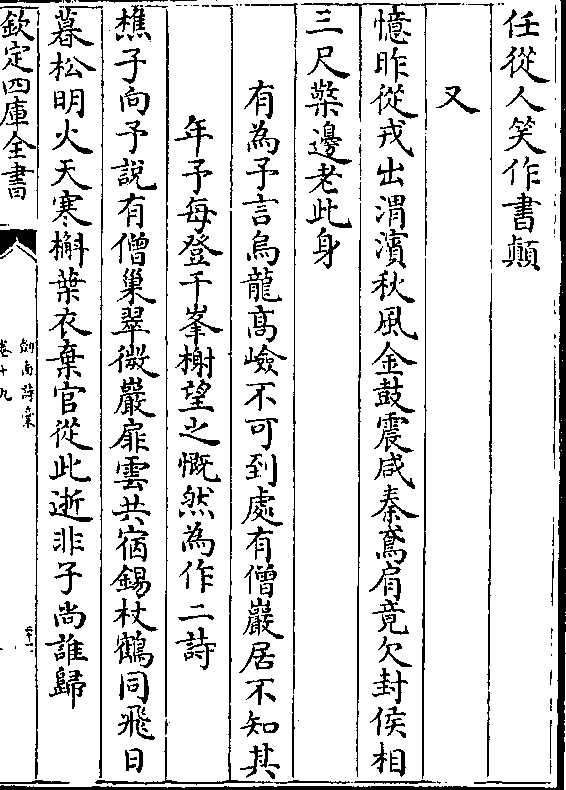 任從人笑作書顛
又
憶昨從戎出渭濱秋風金鼓震咸秦鳶肩竟欠封侯相
三尺檠邊老此身
有為予言烏龍高嶮不可到處有僧巖居不知其
年予每登千峯榭望之慨然為作二詩
樵子向予說有僧巢翠微巖扉雲共宿錫杖鶴同飛日
暮松明火天寒槲葉衣棄官從此逝非子尚誰歸
欽定四庫全書
劍南詩稾
卷十九